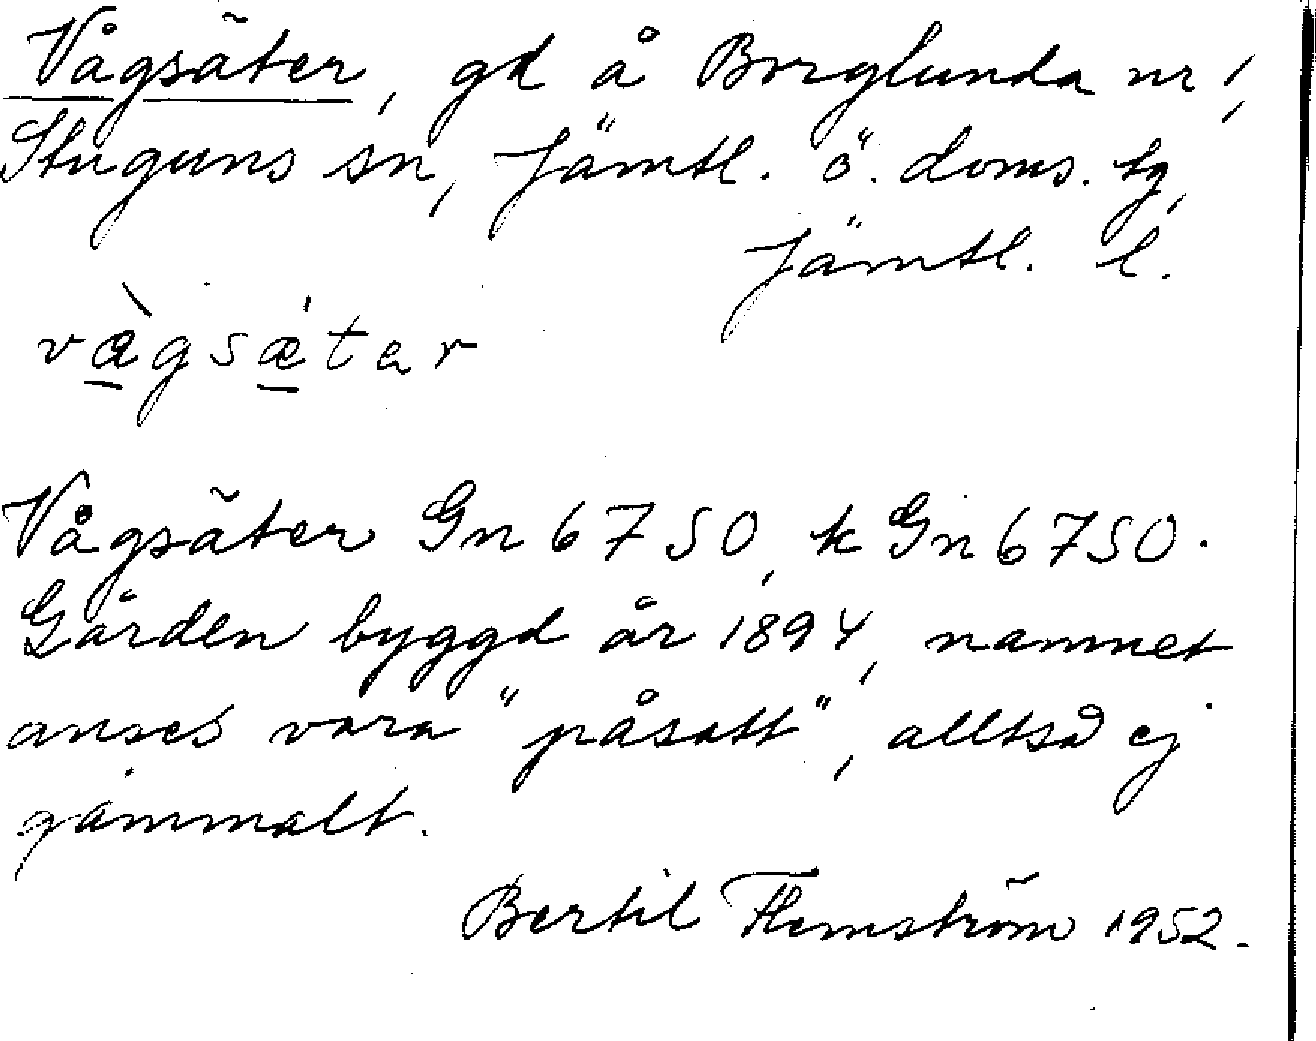 Vågsäter, gd å Borglunda nr 1,
Stuguns sn, Jämtl. ö. doms. tg,
Jämtl. l.
væ̀gsǽtar
Vågsäter Gn 6750, k Gn 6750.
Gården byggd år 1894, namnet
anses vara "påsatt", alltså ej
gammalt.
Bertil Flemström 1952.